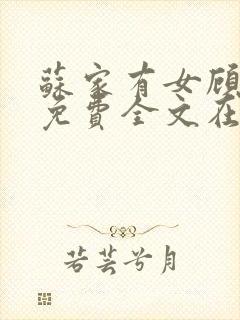 蘇家有女顾
免費全文在
若芸兮月